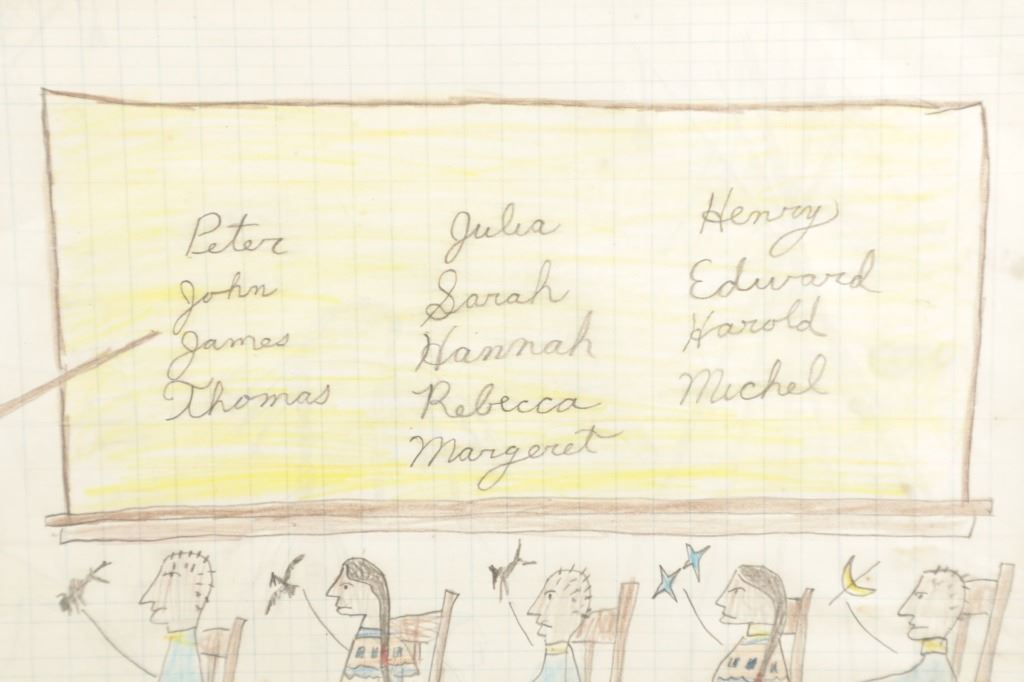 Peter
John
James
Thomas
Julia
Sarah
Hannah
Rebecca
Margeret
Henry
Edward
Harold
Michel